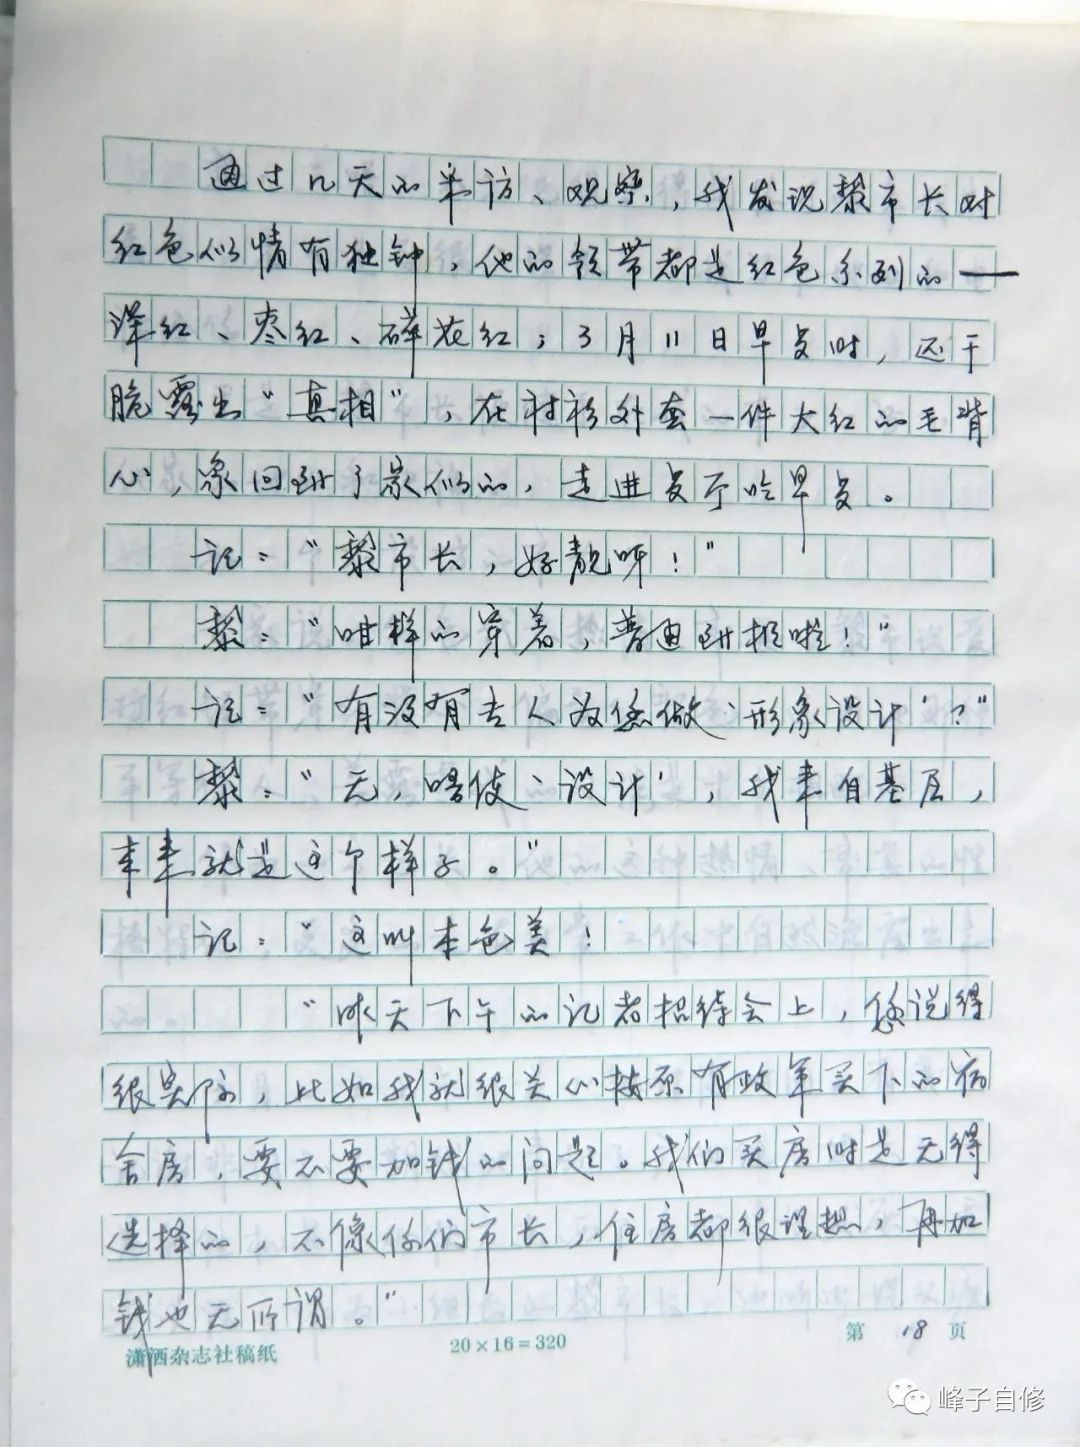 通过几天的采访、观察，我发现黎市长对
红色似情有独钟，他的领带都是红色系列的——
洋红、枣红、碎花红；3月11日早餐时，还干
脆露出“真相”，在衬衫外套一件大红的毛背
心，象回到了家似的，走进餐厅吃早餐。
记：“黎市长，好靓呀！”
黎：“咁样的穿着，普通到极啦！”
记：“有没有专人为您做‘形象设计’？”
黎：“无，唔使‘设计’，我来自基层，
本来就是这个样子。”
记：“这叫本色美！
“昨天下午的记者招待会上，您说得
很实际，比如我就很关心按原有政策买下的宿
舍房，要不要加钱的问题。我们买房时是无得
选择的，不像你们市长，住房都很理想，再加
钱也无所谓。”
潇洒杂志社稿纸 20×16=320 第 18 页
峰子自修